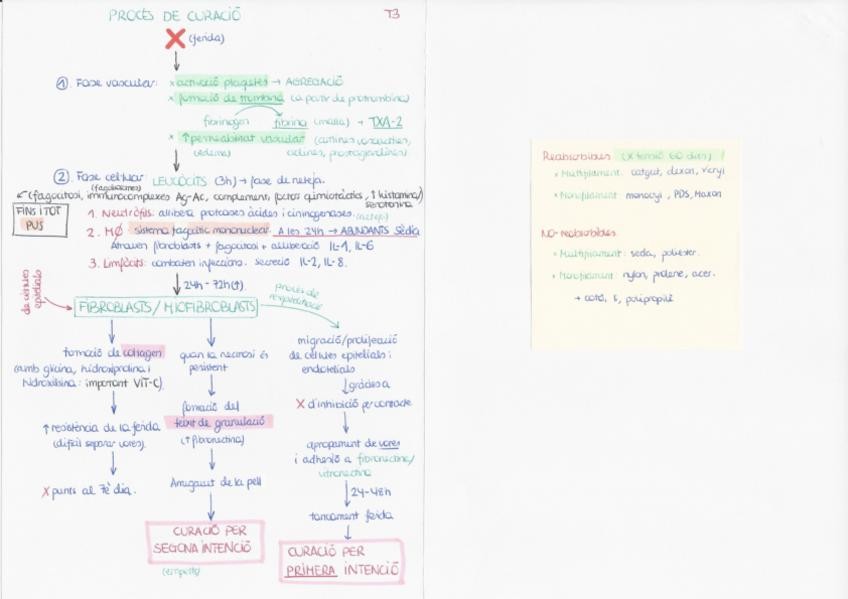 PROCÉS DE CURACIÓ
T3
X (ferida)
① Fase vascular: × activació plaquetes → AGREGACIÓ
× formació de trombina (a partir de protrombina)
fibrinogen fibrina (malla) → TXA-2
× ↑ permeabilitat vascular
(edema)
② Fase cel·lular: LEUCÒCITS (3h) → fase de neteja.
(fagolisosomes)
(fagocitosi, immunocomplexes Ag-Ac, complement, factors quimiotàctics, ↑ histamina/
serotonina
FINS I TOT
PUS
1. Neutròfils: allibera proteases àcides i cininogenases.
2. MØ sistema fagocític mononuclear. A les 24h → ABUNDANTS
Atrauen fibroblasts + fagocitosi + alliberació IL-1, IL-6
3. Limfòcits: combaten infeccions. secreció IL-2, IL-8.
24h - 72h (↑)
de cèl·lules
epitelials
FIBROBLASTS / MIOFIBROBLASTS
procés de
formació de colàgen
(amb glicina, hidroxiprolina i
hidroxilisina: important VIT-C)
↑ resistència de la ferida
(difícil separar vores).
X punts al 7è dia.
quan la necrosi és
persistent
formació del
teixit de granulació
(↑ fibronectina)
Arrugament de la pell
CURACIÓ PER
SEGONA INTENCIÓ
migració/proliferació
de cèl·lules epitelials i
endotelials
gràcies a
X d'inhibició per contacte
apropament de vores
i adhesió a fibronectina/
vitronectina
24-48h
tancament ferida
CURACIÓ PER
PRIMERA INTENCIÓ
Reabsorbibles (X tensió 60 dies)
× Multifilament: catgut, dexon, vicryl
× Monofilament: monocryl, PDS, Maxon
NO-reabsorbibles
× Multifilament: seda, poliester.
× Monofilament: nylon, prolene, acer.